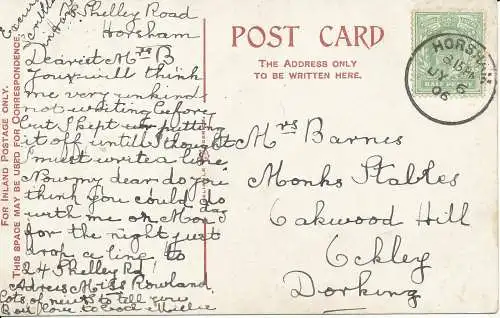 Excuse
scribble
in haste
24 Shelley Road
Horsham
Dearest Mrs B
You will think
me very unkind
not writing before
but I kept putting
it off until I thought
I must write a line
Now my dear do you
think you could do
with me on Monday
for the night just
drop a line to
24 Shelley Rd
Adress Miss Rowland
Lots of news to tell you
Best love to
FOR INLAND POSTAGE ONLY.
THIS SPACE MAY BE USED FOR CORRESPONDENCE.
POST CARD
THE ADDRESS ONLY
TO BE WRITTEN HERE.
HORSHAM
8.15 PM
JY 6
06
Mrs Barnes
Monks Stables
Oakwood Hill
Ockley
Dorking